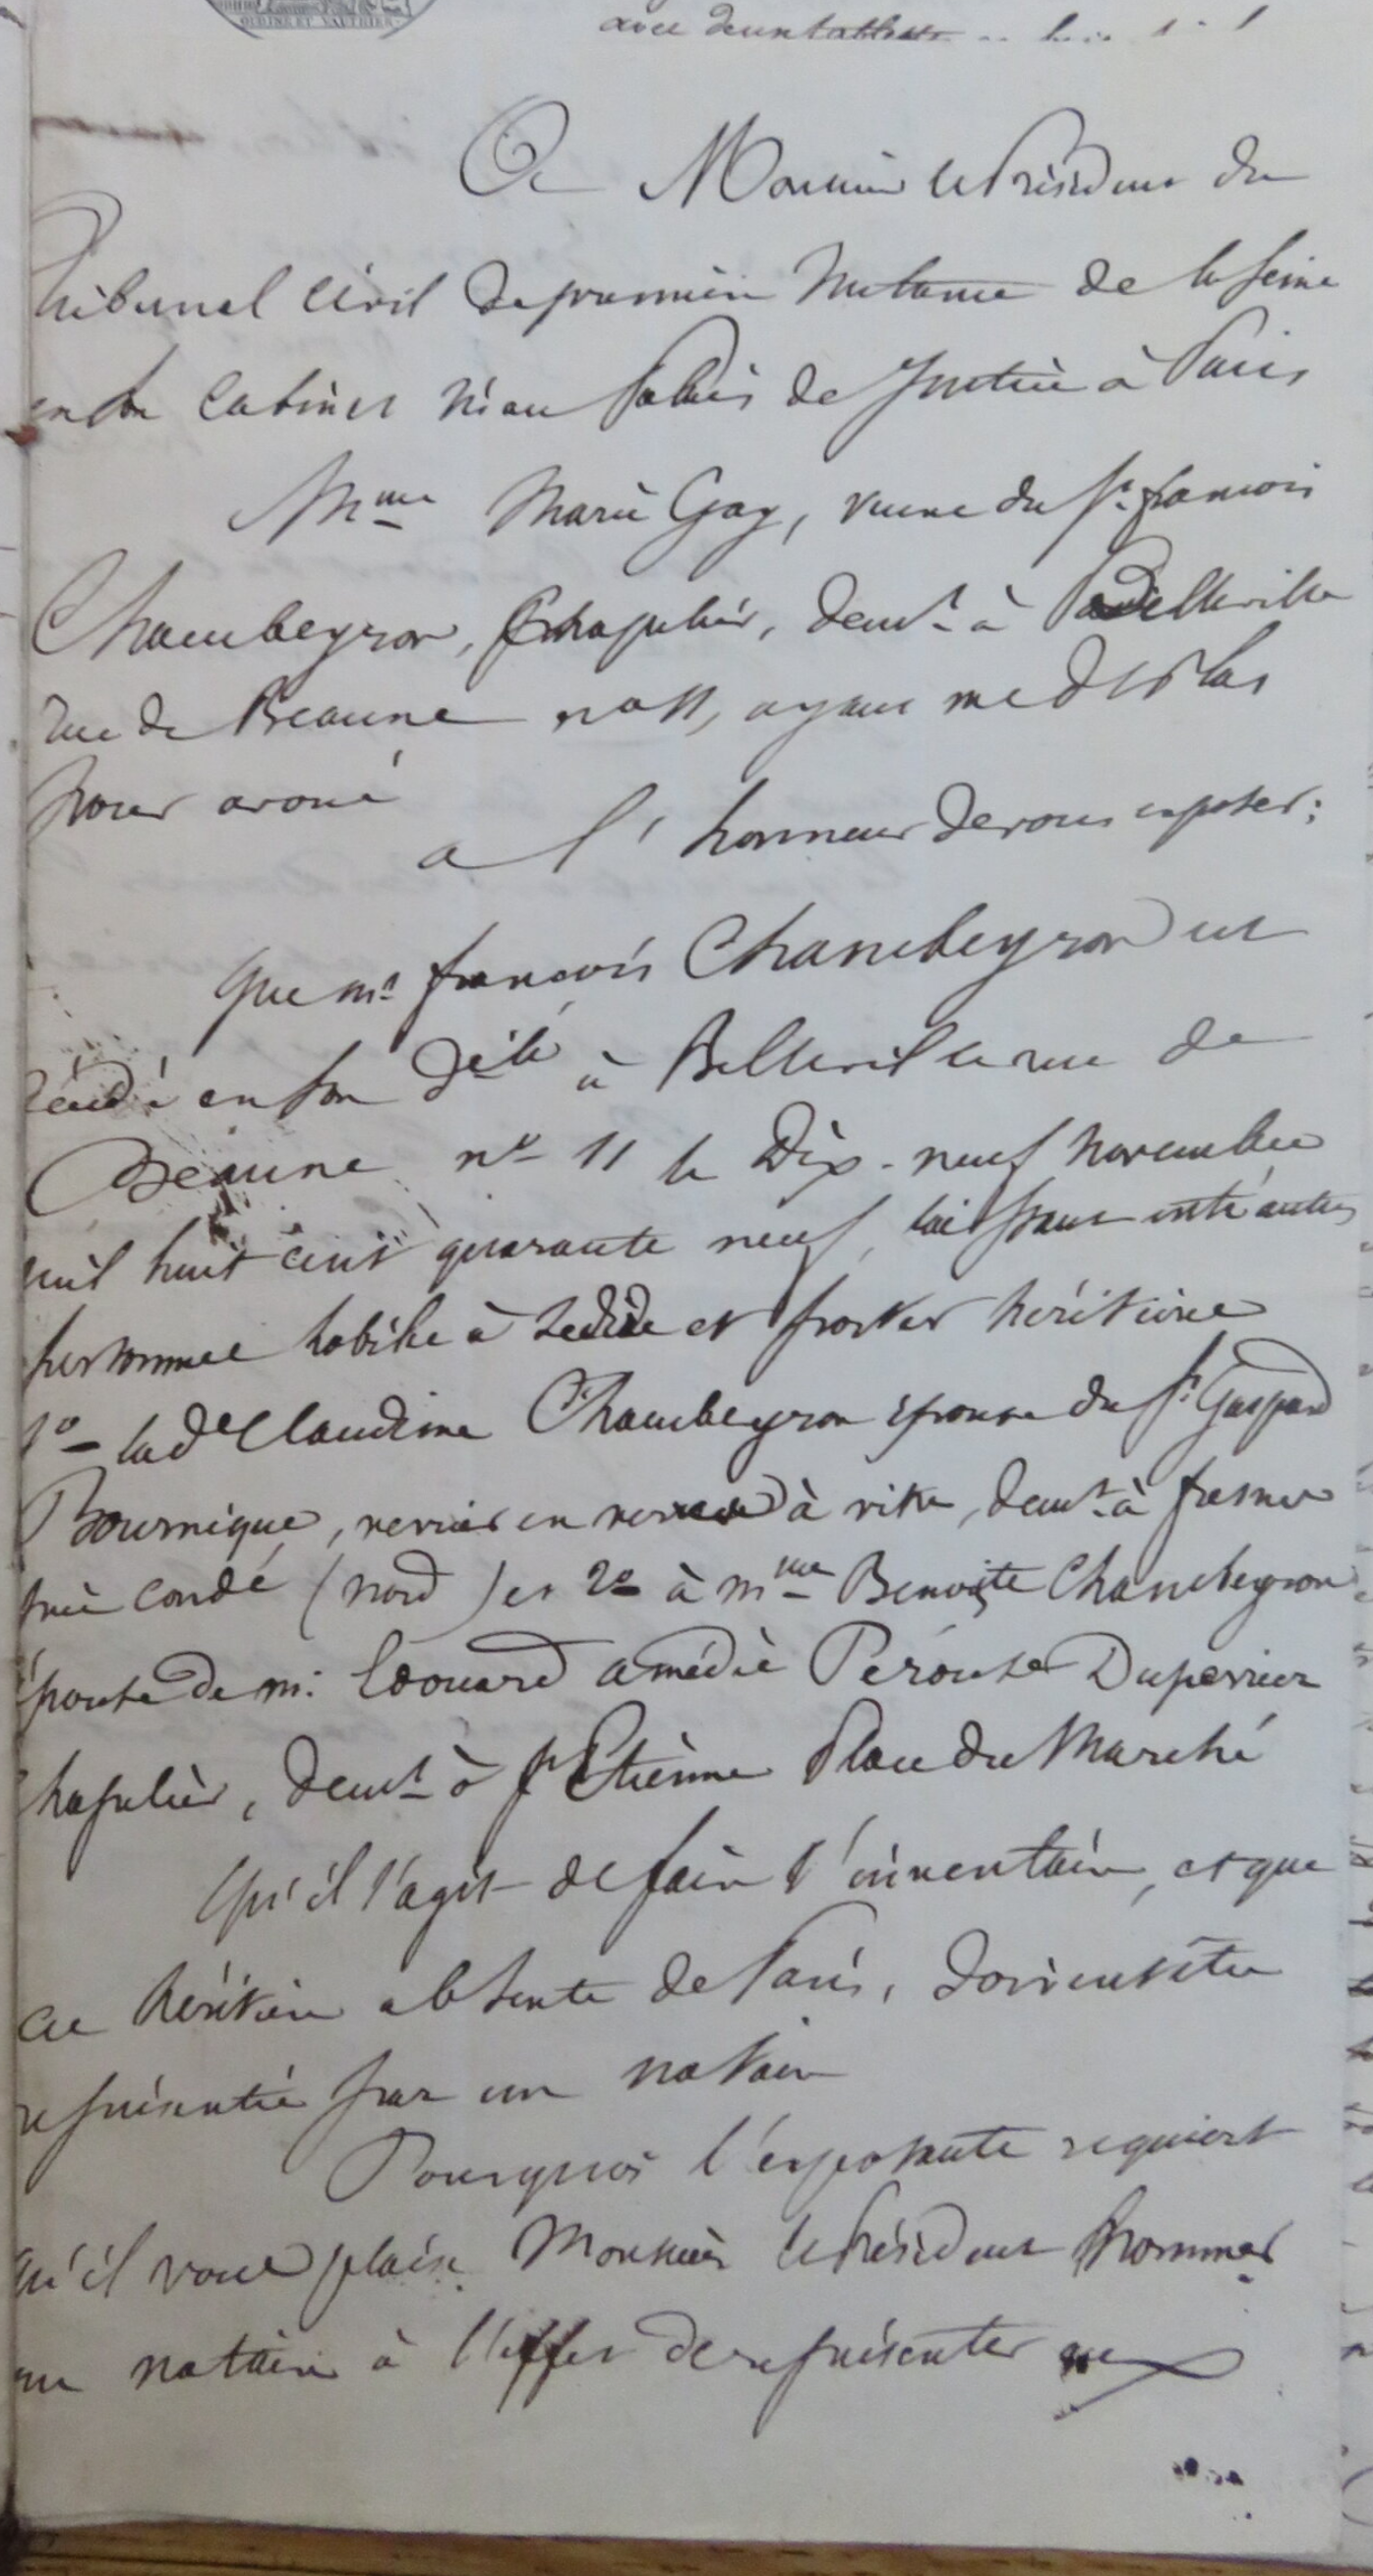 OUDINE ET VAUTHIER
avec
A Monsieur le Président du
Tribunal Civil de première Instance de la Seine
en son Cabinet sis au Palais de Justice à Paris
Mme Marie Gay, veuve du Sr. françois
Chambeyron, chapelier, demt. à Belleville
rue de Beaune no 11, ayant me
pour avoué
a l'honneur de vous exposer:
Que mr. françois Chambeyron est
décédé en son dlé à Belleville rue de
Beaune no 11 le Dix-neuf novembre
mil huit cent quarante neuf, laissant entr'autres
personnes habiles à se dire et porter héritières
1o la de Claudine Chambeyron épouse du Sr. Gaspard
Bournique, verrier en verres à vitre, demt. à fresnes
près Condé (nord) et 2o à mme Benoite Chambeyron
épouse de m. Edouard amédée Pérouse Duperrier
chapelier, demt. à St Etienne Place du Marché
Qu'il s'agit de faire l'inventaire, et que
ces héritières absentes de Paris, doivent être
représentées par un notaire
Pourquoi l'exposante requiert
qu'il vous plaise Monsieur le Président nommer
un notaire à l'effet de représenter